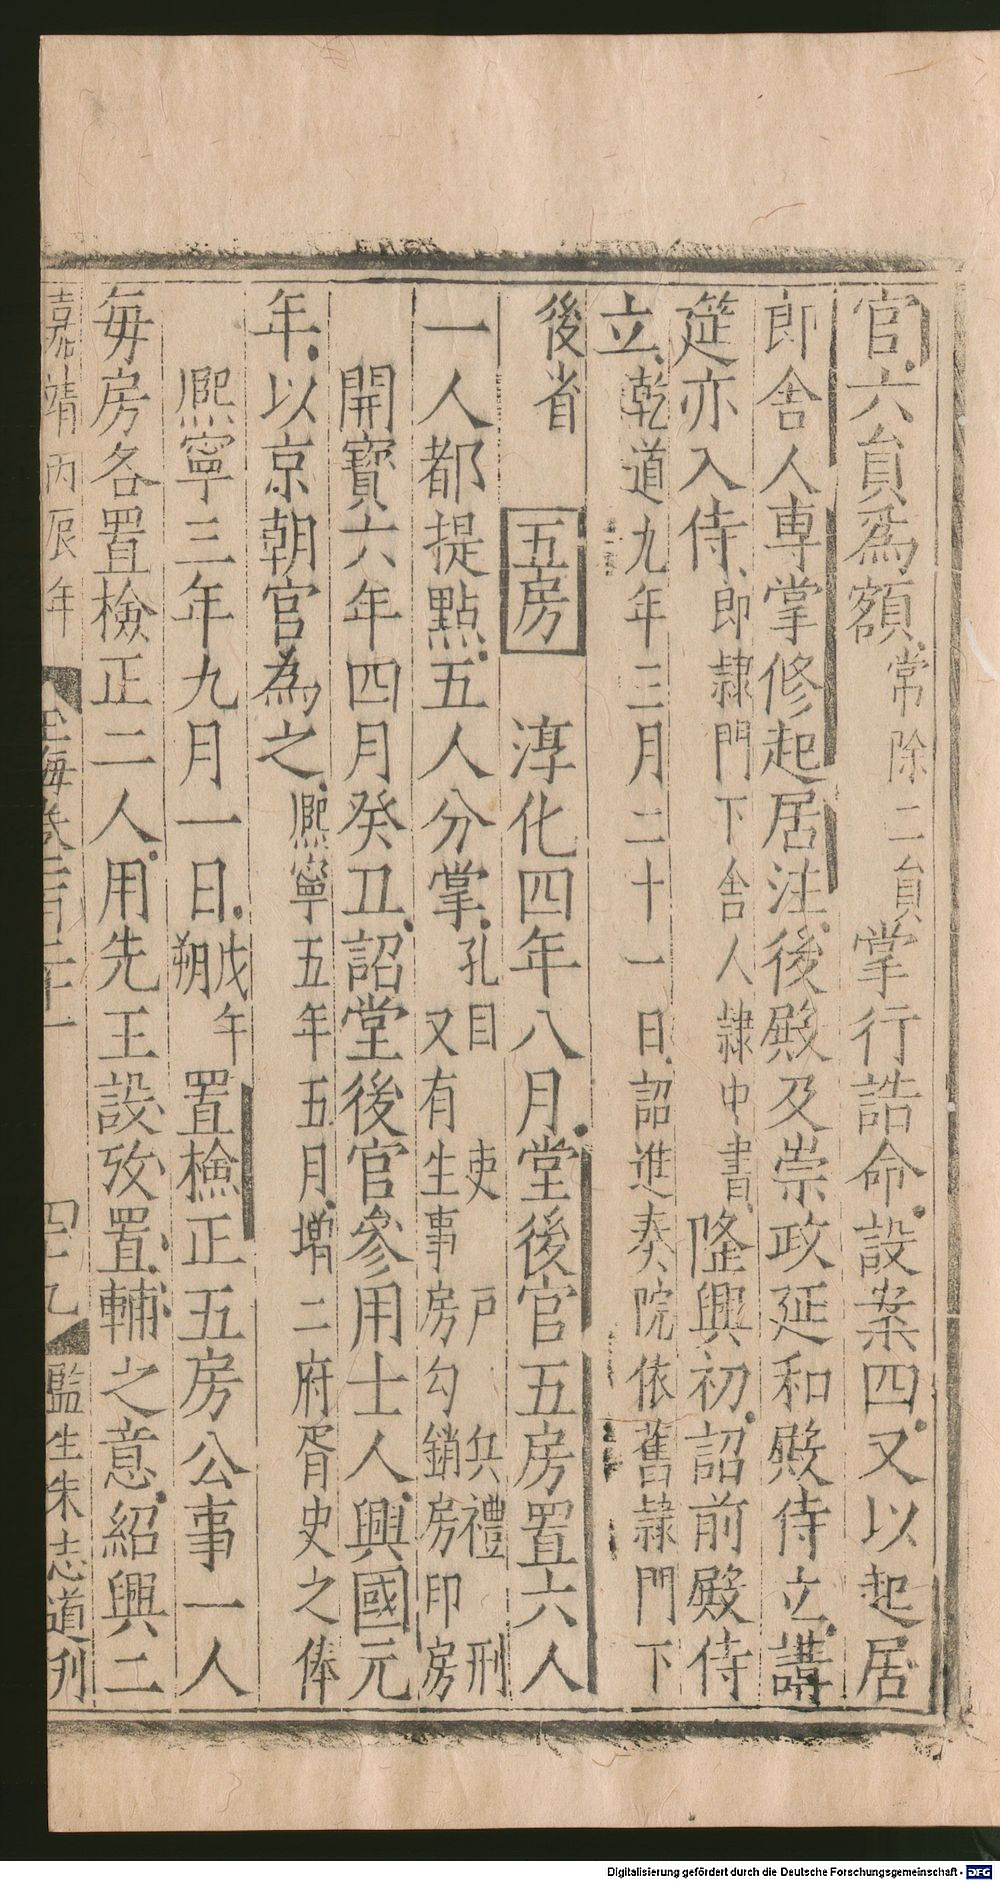 官六員爲額常除二員掌行誥命設案四又以起居
郎舍人專掌修起居注後殿及崇政延和殿侍立講
筵亦入侍即隷門下舍人隷中書隆興初詔前殿侍
立乾道九年三月二十一日詔進奏院依舊隷門下
後省 五房 淳化四年八月堂後官五房置六人
一人都提點五人分掌孔目 吏 戸 兵禮 刑
又有生事房勾銷房印房
開寶六年四月癸丑詔堂後官參用士人興國元
年以京朝官為之熈寧五年五月增二府胥史之俸
熈寧三年九月一日戊午
朔
置檢正五房公事一人
毎房各置檢正二人用先王設攷置輔之意紹興二
嘉靖丙辰年 玉海卷 二十一 四十九 監生朱志道刋
Digitalisierung gefördert durch die Deutsche Forschungsgemeinschaft - DFG